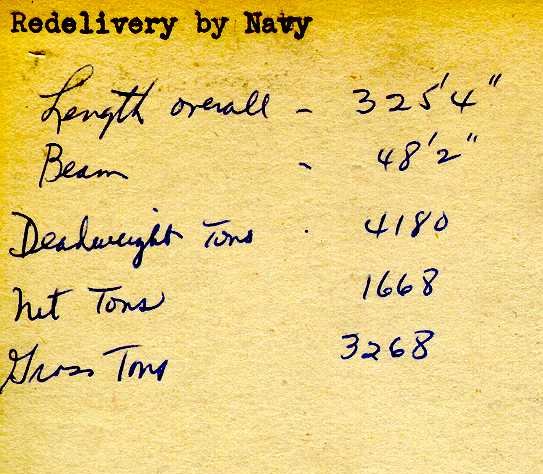 Redelivery by Navy
Length overall - 325'4"
Beam - 48'2"
Deadweight Tons . 4180
Net Tons 1668
Gross Tons 3268